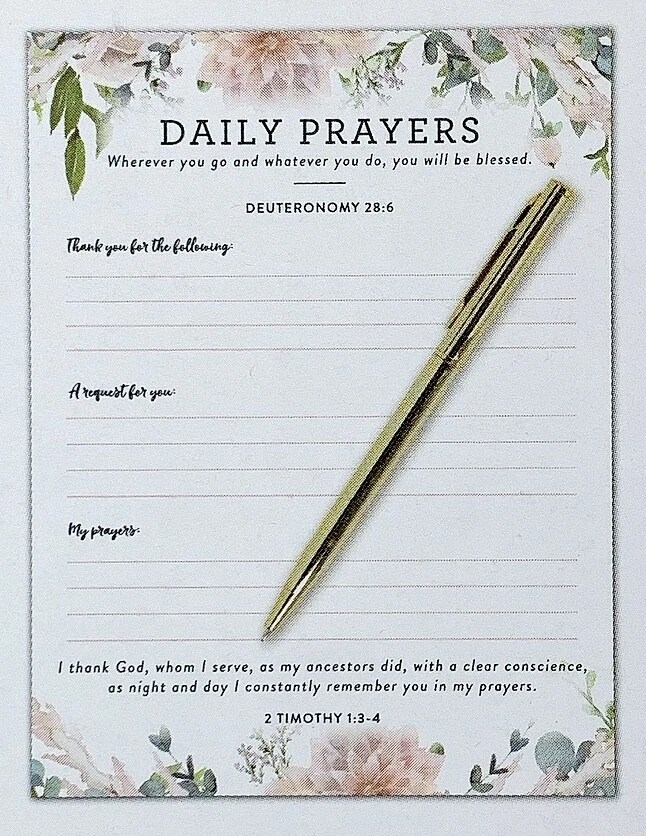 DAILY PRAYERS
Wherever you go and whatever you do, you will be blessed.
DEUTERONOMY 28:6
Thank you for the following:
A request for you:
My prayers:
I thank God, whom I serve, as my ancestors did, with a clear conscience,
as night and day I constantly remember you in my prayers.
2 TIMOTHY 1:3-4